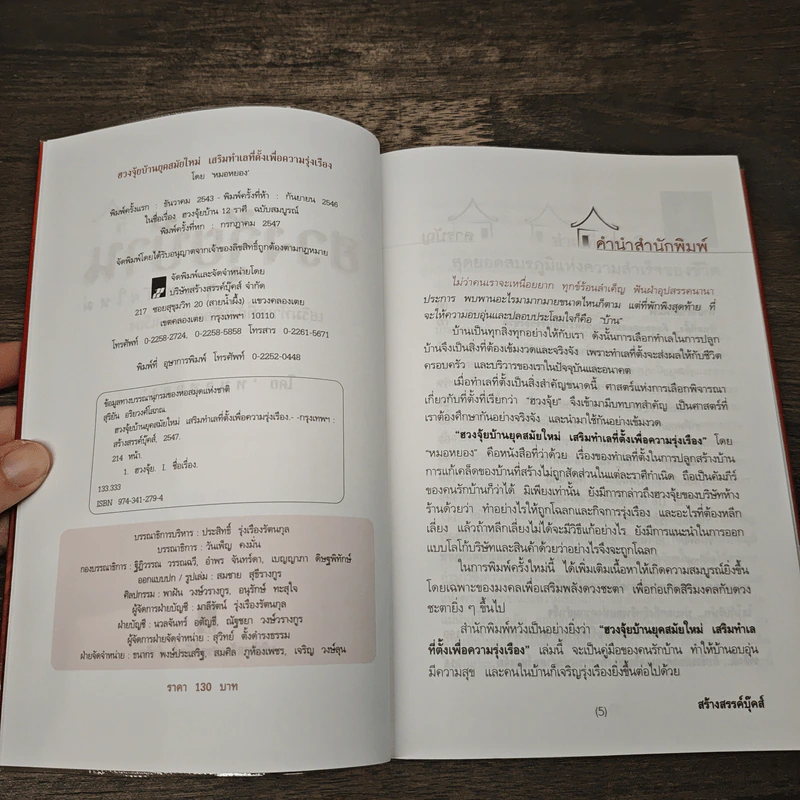 ฮวงจุ้ยบ้านยุคสมัยใหม่ เสริมทำเลที่ตั้งเพื่อความรุ่งเรือง
โดย 'หมอหยอง'
พิมพ์ครั้งแรก : ธันวาคม 2543 - พิมพ์ครั้งที่ห้า : กันยายน 2546
ในชื่อเรื่อง ฮวงจุ้ยบ้าน 12 ราศี ฉบับสมบูรณ์
พิมพ์ครั้งที่หก : กรกฎาคม 2547
จัดพิมพ์โดยได้รับอนุญาตจากเจ้าของลิขสิทธิ์ถูกต้องตามกฎหมาย
จัดพิมพ์และจัดจำหน่ายโดย
บริษัทสร้างสรรค์บุ๊คส์ จำกัด
217 ซอยสุขุมวิท 20 (สายน้ำผึ้ง) แขวงคลองเตย
เขตคลองเตย กรุงเทพฯ 10110
โทรศัพท์ 0-2258-2724, 0-2258-5858 โทรสาร 0-2261-5671
พิมพ์ที่ อุษาการพิมพ์ โทรศัพท์ 0-2252-0448
ข้อมูลทางบรรณานุกรมของหอสมุดแห่งชาติ
สุริยัน อริยวงศ์โสภณ
ฮวงจุ้ยบ้านยุคสมัยใหม่ เสริมทำเลที่ตั้งเพื่อความรุ่งเรือง.- -กรุงเทพฯ :
สร้างสรรค์บุ๊คส์, 2547.
214 หน้า.
1. ฮวงจุ้ย. I. ชื่อเรื่อง.
133.333
ISBN 974-341-279-4
บรรณาธิการบริหาร : ประสิทธิ์ รุ่งเรืองรัตนกุล
บรรณาธิการ : วันเพ็ญ คงมั่น
กองบรรณาธิการ : ฐิฏิวรรณ วรรณฉวี, อำพร จันทร์ดา, เบญญาภา ดิษฐพิทักษ์
ออกแบบปก / รูปเล่ม : สมชาย สุธีรางกูร
ศิลปกรรม : พาฝัน วงษ์วรางกูร, อนุรักษ์ ทะสุใจ
ผู้จัดการฝ่ายบัญชี : มาลีรัตน์ รุ่งเรืองรัตนกุล
ฝ่ายบัญชี : นวลจันทร์ อตัญธี, ณัฐชยา วงษ์วรางกูร
ผู้จัดการฝ่ายจัดจำหน่าย : สุวิทย์ ตั้งดำรงธรรม
ฝ่ายจัดจำหน่าย : ธนากร พงษ์ประเสริฐ, สมศิล ภูห้องเพชร, เจริญ วงษ์ลุน
ราคา 130 บาท
คำนำสำนักพิมพ์
ไม่ว่าคนเราจะเหนื่อยยาก ทุกข์ร้อนลำเค็ญ ฟันฝ่าอุปสรรคนานา
ประการ พบพานอะไรมามากมายขนาดไหนก็ตาม แต่ที่พักพิงสุดท้าย ที่
จะให้ความอบอุ่นและปลอบประโลมใจก็คือ "บ้าน"
บ้านเป็นทุกสิ่งทุกอย่างให้กับเรา ดังนั้นการเลือกทำเลในการปลูก
บ้านจึงเป็นสิ่งที่ต้องเข้มงวดและจริงจัง เพราะทำเลที่ตั้งจะส่งผลให้กับชีวิต
ครอบครัว และบริวารของเราในปัจจุบันและอนาคต
เมื่อทำเลที่ตั้งเป็นสิ่งสำคัญขนาดนี้ ศาสตร์แห่งการเลือกพิจารณา
เกี่ยวกับที่ตั้งที่เรียกว่า "ฮวงจุ้ย" จึงเข้ามามีบทบาทสำคัญ เป็นศาสตร์ที่
เราต้องศึกษากันอย่างจริงจัง และนำมาใช้กันอย่างเข้มงวด
"ฮวงจุ้ยบ้านยุคสมัยใหม่ เสริมทำเลที่ตั้งเพื่อความรุ่งเรือง" โดย
"หมอหยอง" คือหนังสือที่ว่าด้วย เรื่องของทำเลที่ตั้งในการปลูกสร้างบ้าน
การแก้เคล็ดของบ้านที่สร้างไม่ถูกสัดส่วนในแต่ละราศีกำเนิด ถือเป็นคัมภีร์
ของคนรักบ้านก็ว่าได้ มิเพียงเท่านั้น ยังมีการกล่าวถึงฮวงจุ้ยของบริษัทห้าง
ร้านด้วยว่า ทำอย่างไรให้ถูกโฉลกและกิจการรุ่งเรือง และอะไรที่ต้องหลีก
เลี่ยง แล้วถ้าหลีกเลี่ยงไม่ได้จะมีวิธีแก้อย่างไร ยังมีการแนะนำในการออก
แบบโลโก้บริษัทและสินค้าด้วยว่าอย่างไรจึงจะถูกโฉลก
ในการพิมพ์ครั้งใหม่นี้ ได้เพิ่มเติมเนื้อหาให้เกิดความสมบูรณ์ยิ่งขึ้น
โดยเฉพาะของมงคลเพื่อเสริมพลังดวงชะตา เพื่อก่อเกิดสิริมงคลกับดวง
ชะตายิ่ง ๆ ขึ้นไป
สำนักพิมพ์หวังเป็นอย่างยิ่งว่า "ฮวงจุ้ยบ้านยุคสมัยใหม่ เสริมทำเล
ที่ตั้งเพื่อความรุ่งเรือง" เล่มนี้ จะเป็นคู่มือของคนรักบ้าน ทำให้บ้านอบอุ่น
มีความสุข และคนในบ้านก็เจริญรุ่งเรืองยิ่งขึ้นต่อไปด้วย
สร้างสรรค์บุ๊คส์
(5)